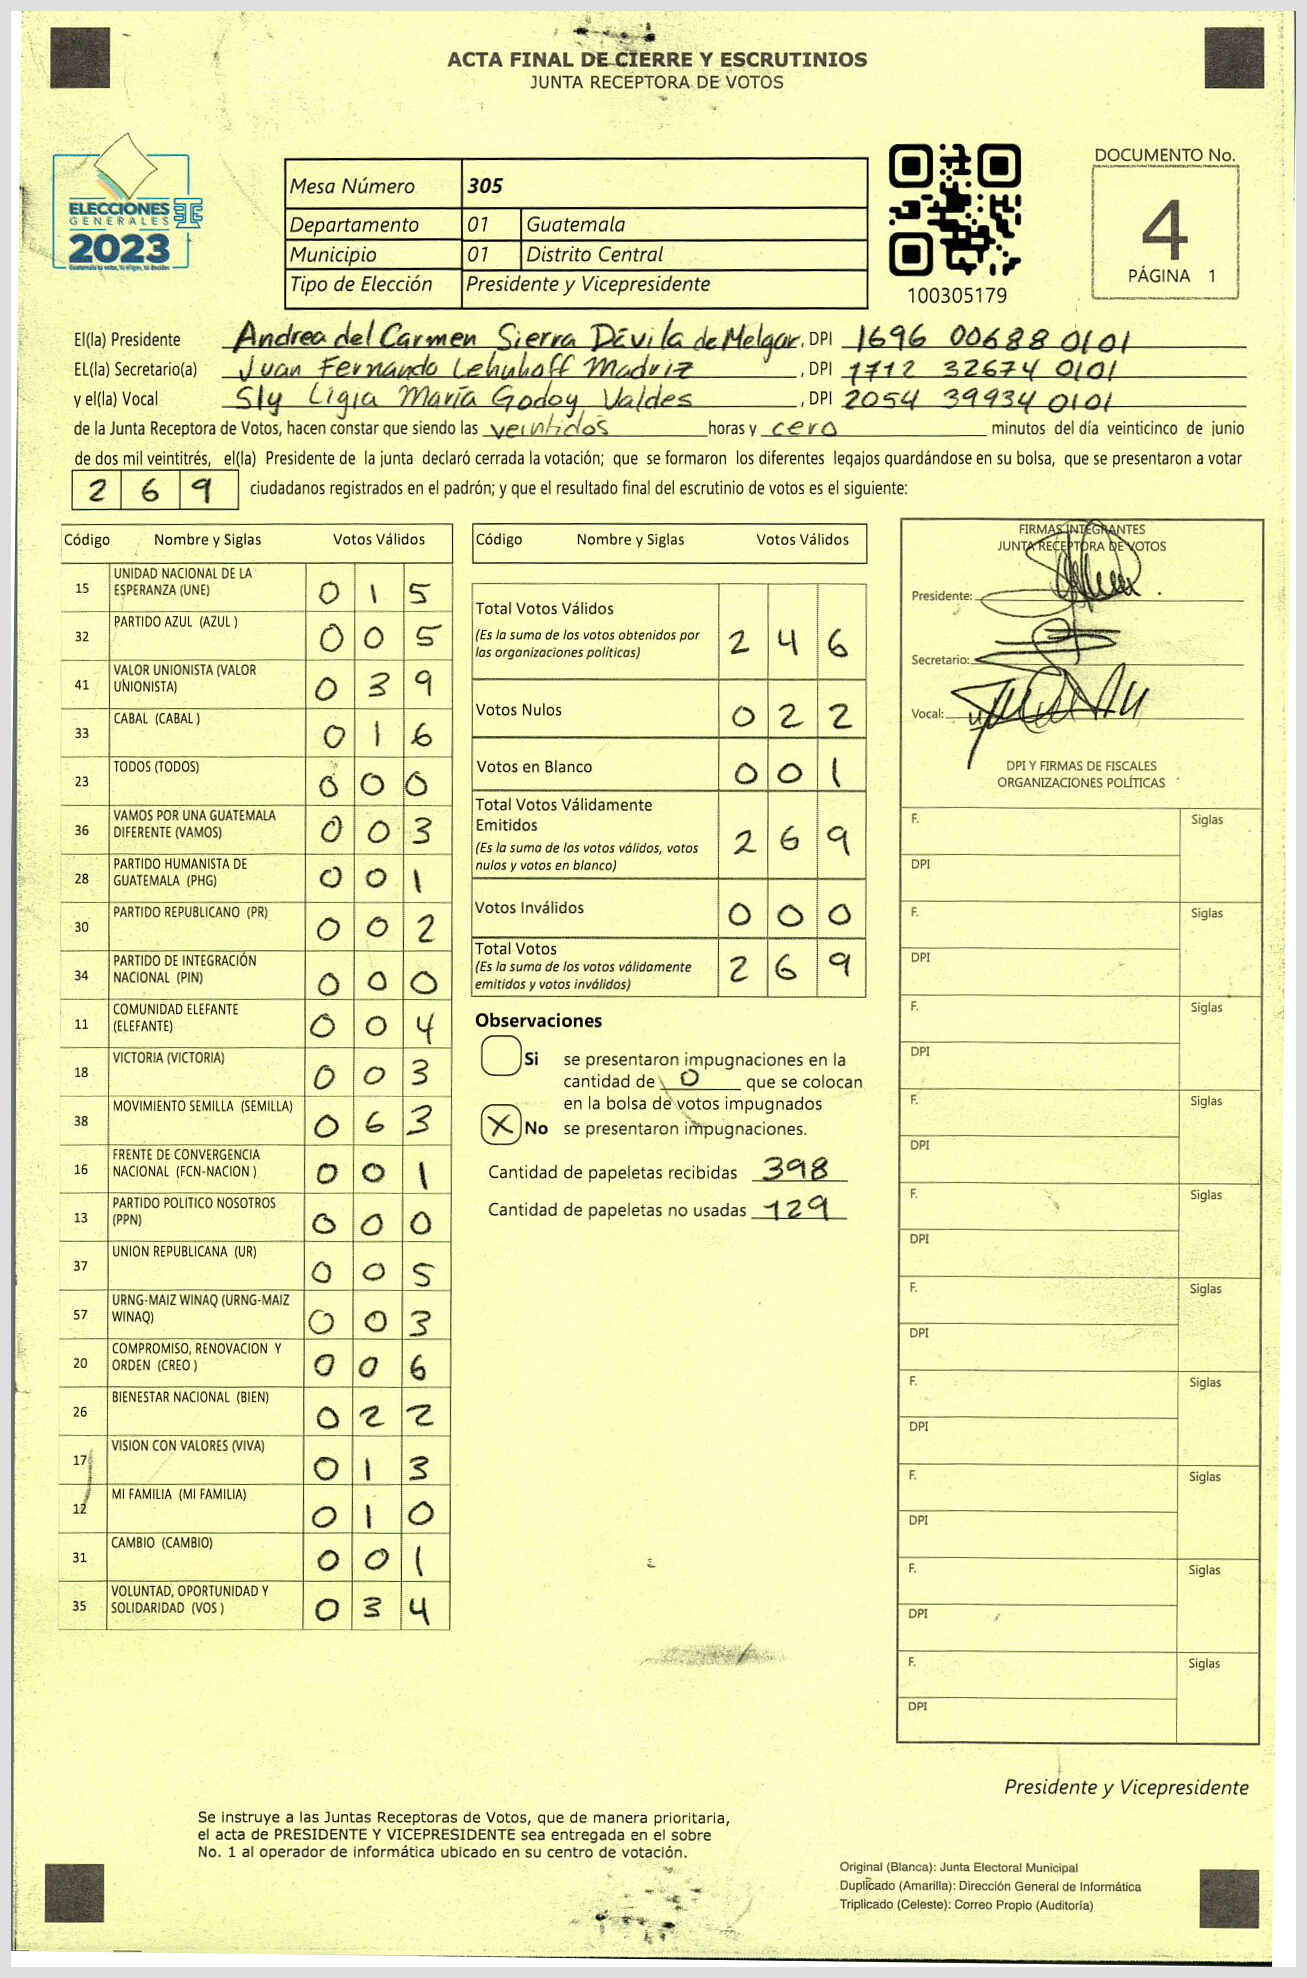 ACTA FINAL DE CIERRE Y ESCRUTINIOS
JUNTA RECEPTORA DE VOTOS
ELECCIONES
GENERALES
2023
Mesa Número 305
Departamento 01 Guatemala
Municipio 01 Distrito Central
Tipo de Elección Presidente y Vicepresidente
100305179
DOCUMENTO No.
4
PÁGINA 1
El(la) Presidente Andrea del Carmen Sierra Dávila de Melgar, DPI 1696 00688 0101
EL(la) Secretario(a) Juan Fernando Lehnhoff Madriz, DPI 1712 32674 0101
y el(la) Vocal Sly Ligia María Godoy Valdes, DPI 2054 39934 0101
de la Junta Receptora de Votos, hacen constar que siendo las veintidos horas y cero minutos del día veinticinco de junio
de dos mil veintitrés, el(la) Presidente de la junta declaró cerrada la votación; que se formaron los diferentes legajos guardándose en su bolsa, que se presentaron a votar
2 6 9 ciudadanos registrados en el padrón; y que el resultado final del escrutinio de votos es el siguiente:
Código Nombre y Siglas Votos Válidos
15 UNIDAD NACIONAL DE LA
ESPERANZA (UNE) 0 1 5
32 PARTIDO AZUL (AZUL ) 0 0 5
41 VALOR UNIONISTA (VALOR
UNIONISTA) 0 3 9
33 CABAL (CABAL ) 0 1 6
23 TODOS (TODOS) 0 0 0
36 VAMOS POR UNA GUATEMALA
DIFERENTE (VAMOS) 0 0 3
28 PARTIDO HUMANISTA DE
GUATEMALA (PHG) 0 0 1
30 PARTIDO REPUBLICANO (PR) 0 0 2
34 PARTIDO DE INTEGRACIÓN
NACIONAL (PIN) 0 0 0
11 COMUNIDAD ELEFANTE
(ELEFANTE) 0 0 4
18 VICTORIA (VICTORIA) 0 0 3
38 MOVIMIENTO SEMILLA (SEMILLA) 0 6 3
16 FRENTE DE CONVERGENCIA
NACIONAL (FCN-NACION ) 0 0 1
13 PARTIDO POLITICO NOSOTROS
(PPN) 0 0 0
37 UNION REPUBLICANA (UR) 0 0 5
57 URNG-MAIZ WINAQ (URNG-MAIZ
WINAQ) 0 0 3
20 COMPROMISO, RENOVACION Y
ORDEN (CREO ) 0 0 6
26 BIENESTAR NACIONAL (BIEN) 0 2 2
17 VISION CON VALORES (VIVA) 0 1 3
12 MI FAMILIA (MI FAMILIA) 0 1 0
31 CAMBIO (CAMBIO) 0 0 1
35 VOLUNTAD, OPORTUNIDAD Y
SOLIDARIDAD (VOS ) 0 3 4
Código Nombre y Siglas Votos Válidos
Total Votos Válidos
(Es la suma de los votos obtenidos por
las organizaciones políticas) 2 4 6
Votos Nulos 0 2 2
Votos en Blanco 0 0 1
Total Votos Válidamente
Emitidos
(Es la suma de los votos válidos, votos
nulos y votos en blanco) 2 6 9
Votos Inválidos 0 0 0
Total Votos
(Es la suma de los votos válidamente
emitidos y votos inválidos) 2 6 9
Observaciones
Si se presentaron impugnaciones en la
cantidad de 0 que se colocan
en la bolsa de votos impugnados
X No se presentaron impugnaciones.
Cantidad de papeletas recibidas 398
Cantidad de papeletas no usadas 129
FIRMAS INTEGRANTES
JUNTA RECEPTORA DE VOTOS
Presidente:
Secretario:
Vocal:
DPI Y FIRMAS DE FISCALES
ORGANIZACIONES POLÍTICAS
F. Siglas
DPI
F. Siglas
DPI
F. Siglas
DPI
F. Siglas
DPI
F. Siglas
DPI
F. Siglas
DPI
F. Siglas
DPI
F. Siglas
DPI
F. Siglas
DPI
F. Siglas
DPI
Presidente y Vicepresidente
Se instruye a las Juntas Receptoras de Votos, que de manera prioritaria,
el acta de PRESIDENTE Y VICEPRESIDENTE sea entregada en el sobre
No. 1 al operador de informática ubicado en su centro de votación.
Original (Blanca): Junta Electoral Municipal
Duplicado (Amarilla): Dirección General de Informática
Triplicado (Celeste): Correo Propio (Auditoría)